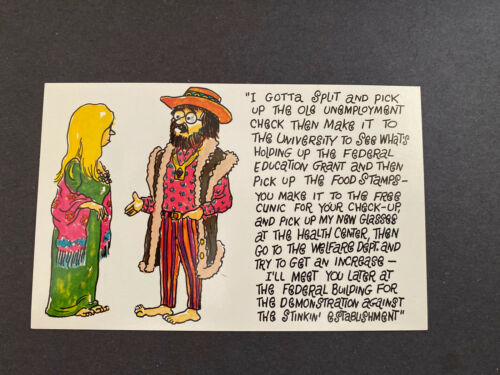 "I GOTTA SPLIT AND PICK
UP THE OLE UNEMPLOYMENT
CHECK THEN MAKE IT TO
THE UNIVERSITY TO SEE WHAT'S
HOLDING UP THE FEDERAL
EDUCATION GRANT AND THEN
PICK UP THE FOOD STAMPS—
YOU MAKE IT TO THE FREE
CLINIC FOR YOUR CHECK-UP,
AND PICK UP MY NEW GLASSES
AT THE HEALTH CENTER, THEN
GO TO THE WELFARE DEPT. AND
TRY TO GET AN INCREASE—
I'LL MEET YOU LATER AT
THE FEDERAL BUILDING FOR
THE DEMONSTRATION AGAINST
THE STINKIN' ESTABLISHMENT"